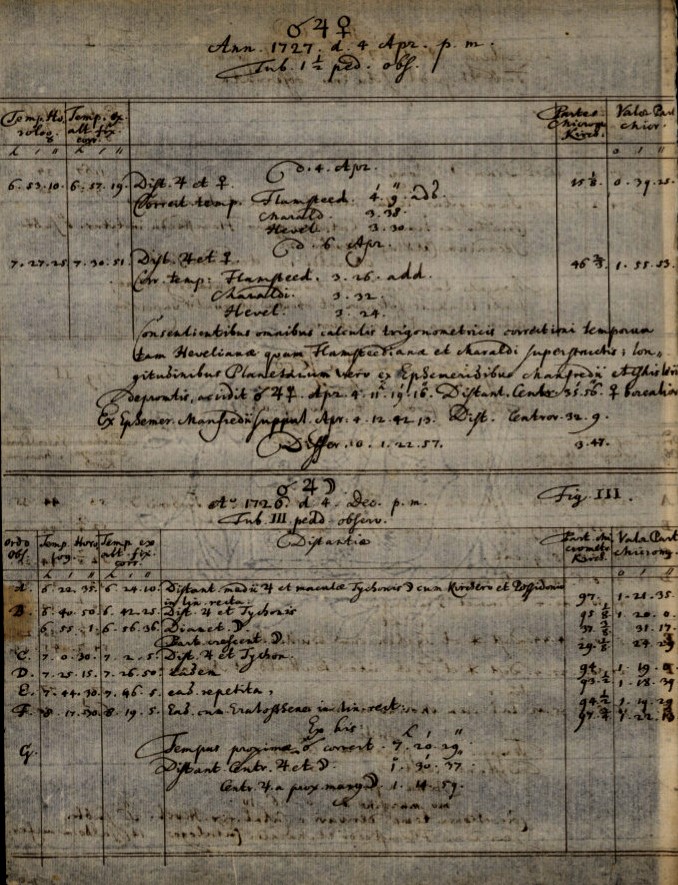 ☌ ♃ ♀
Ann. 1727. d. 4 Apr. p. m.
Tub. 1½ ped. obs.
Temp. Ho. Temp. ex Partes Valor Part
alt. fix. Microm. Micr.
corr. Kirch.
h ′ ″ h ′ ″ o ′ ″
d. 4. Apr.
6. 53. 10. 6. 57. 19. Dist. ♃ et ♀. 15 0. 39. 25.
Correct. temp. Flamsteed. 4. 9. add.
Maraldi. 3. 38.
Hevel. 3. 30.
d. 6. Apr.
7. 27. 25. 7. 30. 51. Dist. ♃ et ♀. 46 1. 55. 53.
Corr. temp. Flamsteed. 3. 26. add.
Maraldi. 3. 32.
Hevel. 3. 24.
Consentientibus omnibus calculis trigonometricis correctioni temporum
tam Heveliana quam Flamsteediana et Maraldi superstructis; lon-
gitudinibus Planetarum vero ex Ephemeridibus Manfredii
depromtis, accidit ☌ ♃ ♀. Apr. 4. 11. 19. 16. Distant. Centr. 35. 56. ♀ borealior
Ex Ephemer. Manfredii supput. Apr. 4. 12. 42. 13. Dist. Centror. 32. 9.
Differ. 0. 1. 22. 57. 3. 47.
☌ ♃ ☽
Ao. 1726. d. 4. Dec. p. m. Fig. III.
Tub. III pedd. observ.
Ordo Temp. Horo Temp. ex Distantiæ Part. mi Valor Part
Obs. log. alt. fix. crometr. Microm.
corr. Kirch.
h ′ ″ h ′ ″ o ′ ″
A. 6. 22. 35. 6. 24. 10. Distant. medii ♃ et maculæ Tychonis ☽ cum Kirchero et Possidonio 97. 1. 21. 35.
in lin. recta.
B. 6. 40. 50. 6. 42. 25. Dist. ♃ et Tychonis 95 1. 20. 0.
6. 55. 1. 6. 56. 36. Diamet. ☽. 37 31. 17.
Part. crescent. ☽. 29
C. 7. 0. 30. 7. 2. 5. Dist. ♃ et Tychon. 94. 1. 19.
D. 7. 25. 15. 7. 26. 50. eadem 93 1. 18. 39
E. 7. 44. 30. 7. 46. 5. ead. repetita, 94 1. 19. 29
F. 8. 17. 30. 8. 19. 5. Ead. cum Eratosthene in lin. rect. 97 1. 22.
Ex his h ′ ″
G. Tempus proximæ ☌ correct. 7. 20. 29.
Distant. Centr. ♃ et ☽ 1. 30. 37.
Centr. ♃ a prox. marg. ☽ 1. 14. 59.